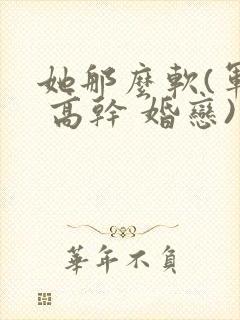 她那麼軟(軍
高幹 婚戀)
華年不負